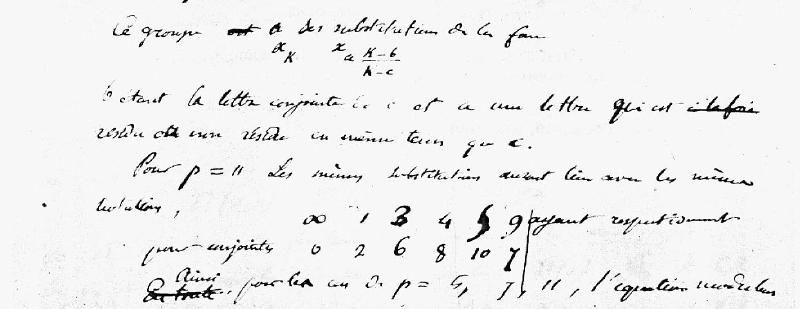 Ce groupe a des substitutions de la forme
x_k x_{a \frac{k-b}{k-c}}
b étant la lettre conjointe de c et a une lettre qui est à la fois
résidu ou non résidu en même tems que c.
Pour p = 11 Les mêmes substitutions auront lieu avec les mêmes
notations,
∞ 1 3 4 5 9 ayant respectivement
pour conjointes 0 2 6 8 10 7
En toute Ainsi, pour les cas de p = 5, 7, 11, l'équation modulaire